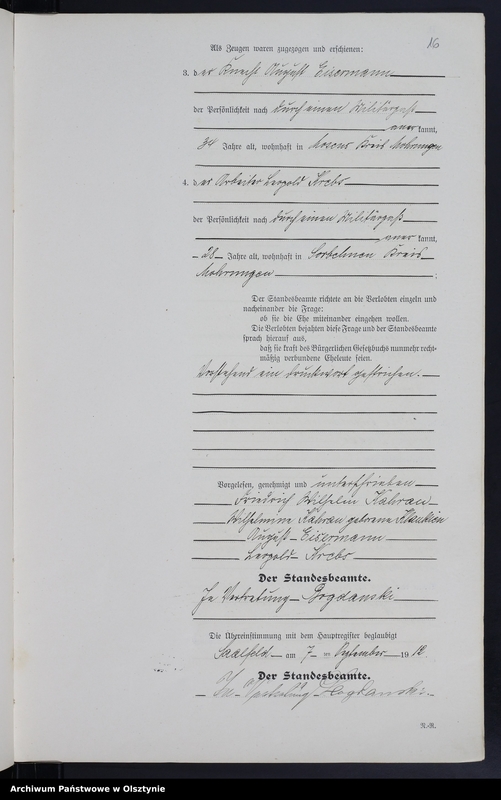 16
Als Zeugen waren zugezogen und erschienen:
3. der Knecht August Eisermann
der Persönlichkeit nach durch einen Militärpaß
aner kannt,
34 Jahre alt, wohnhaft in Kreis Mohrungen
4. der Arbeiter Leopold Krebs
der Persönlichkeit nach durch einen Militärpaß
aner kannt,
28 Jahre alt, wohnhaft in Sorbehnen Kreis
Mohrungen ;
Der Standesbeamte richtete an die Verlobten einzeln und
nacheinander die Frage:
ob sie die Ehe miteinander eingehen wollen.
Die Verlobten bejahten diese Frage und der Standesbeamte
sprach hierauf aus,
daß sie kraft des Bürgerlichen Gesetzbuchs nunmehr recht-
mäßig verbundene Eheleute seien.
Vorstehend ein Druckwort gestrichen.
Vorgelesen, genehmigt und unterschrieben
Friedrich Wilhelm
Wilhelmine geborene
August Eisermann
Leopold Krebs
Der Standesbeamte.
In Vertretung Bogdanski
Die Übereinstimmung mit dem Hauptregister beglaubigt
Saalfeld am 7 ten September 19
Der Standesbeamte.
In Vertretung Bogdanski.
N.-R.
Archiwum Państwowe w Olsztynie